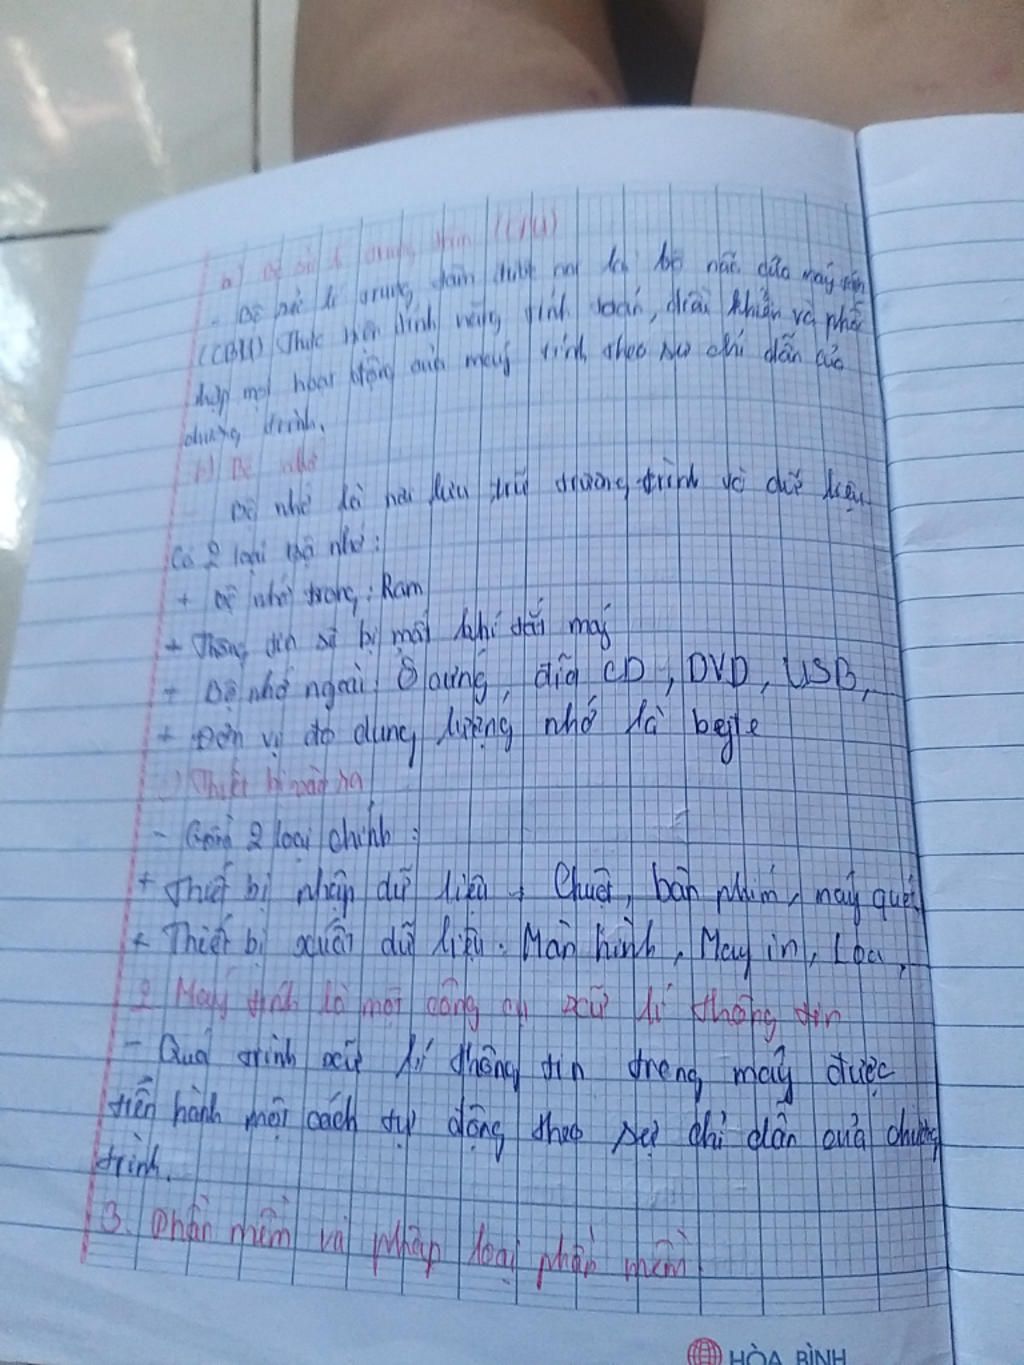 a) Bộ xử lí trung tâm (CPU)
- Bộ xử lí trung tâm được coi là bộ não của máy tính
(CBU) Thực hiện tính năng tính toán, điều khiển và phối
hợp mọi hoạt động của máy tính theo sự chỉ dẫn của
chương trình.
b) Bộ nhớ
Bộ nhớ là nơi lưu trữ trương trình và dữ liệu
Có 2 loại bộ nhớ:
+ Bộ nhớ trong: Ram
+ Thông tin sẽ bị mất khi tắt máy
+ Bộ nhớ ngoài: Ổ cứng, đĩa CD, DVD, USB,
+ Đơn vị đo dung lượng nhớ là beyte
c) Thiết bị vào ra
- Gồm 2 loại chính:
+ Thiết bị nhập dữ liệu: Chuột, bàn phím, máy quét
+ Thiết bị xuất dữ liệu: Màn hình, May in, Loa,
2 Máy tính là một công cụ xử lí thông tin
- Quá trình xử lí thông tin trong máy được
tiến hành một cách tự động theo sự chỉ dẫn của chương
trình.
3. Phần mềm và phâp loại phần mềm
HÒA BÌNH